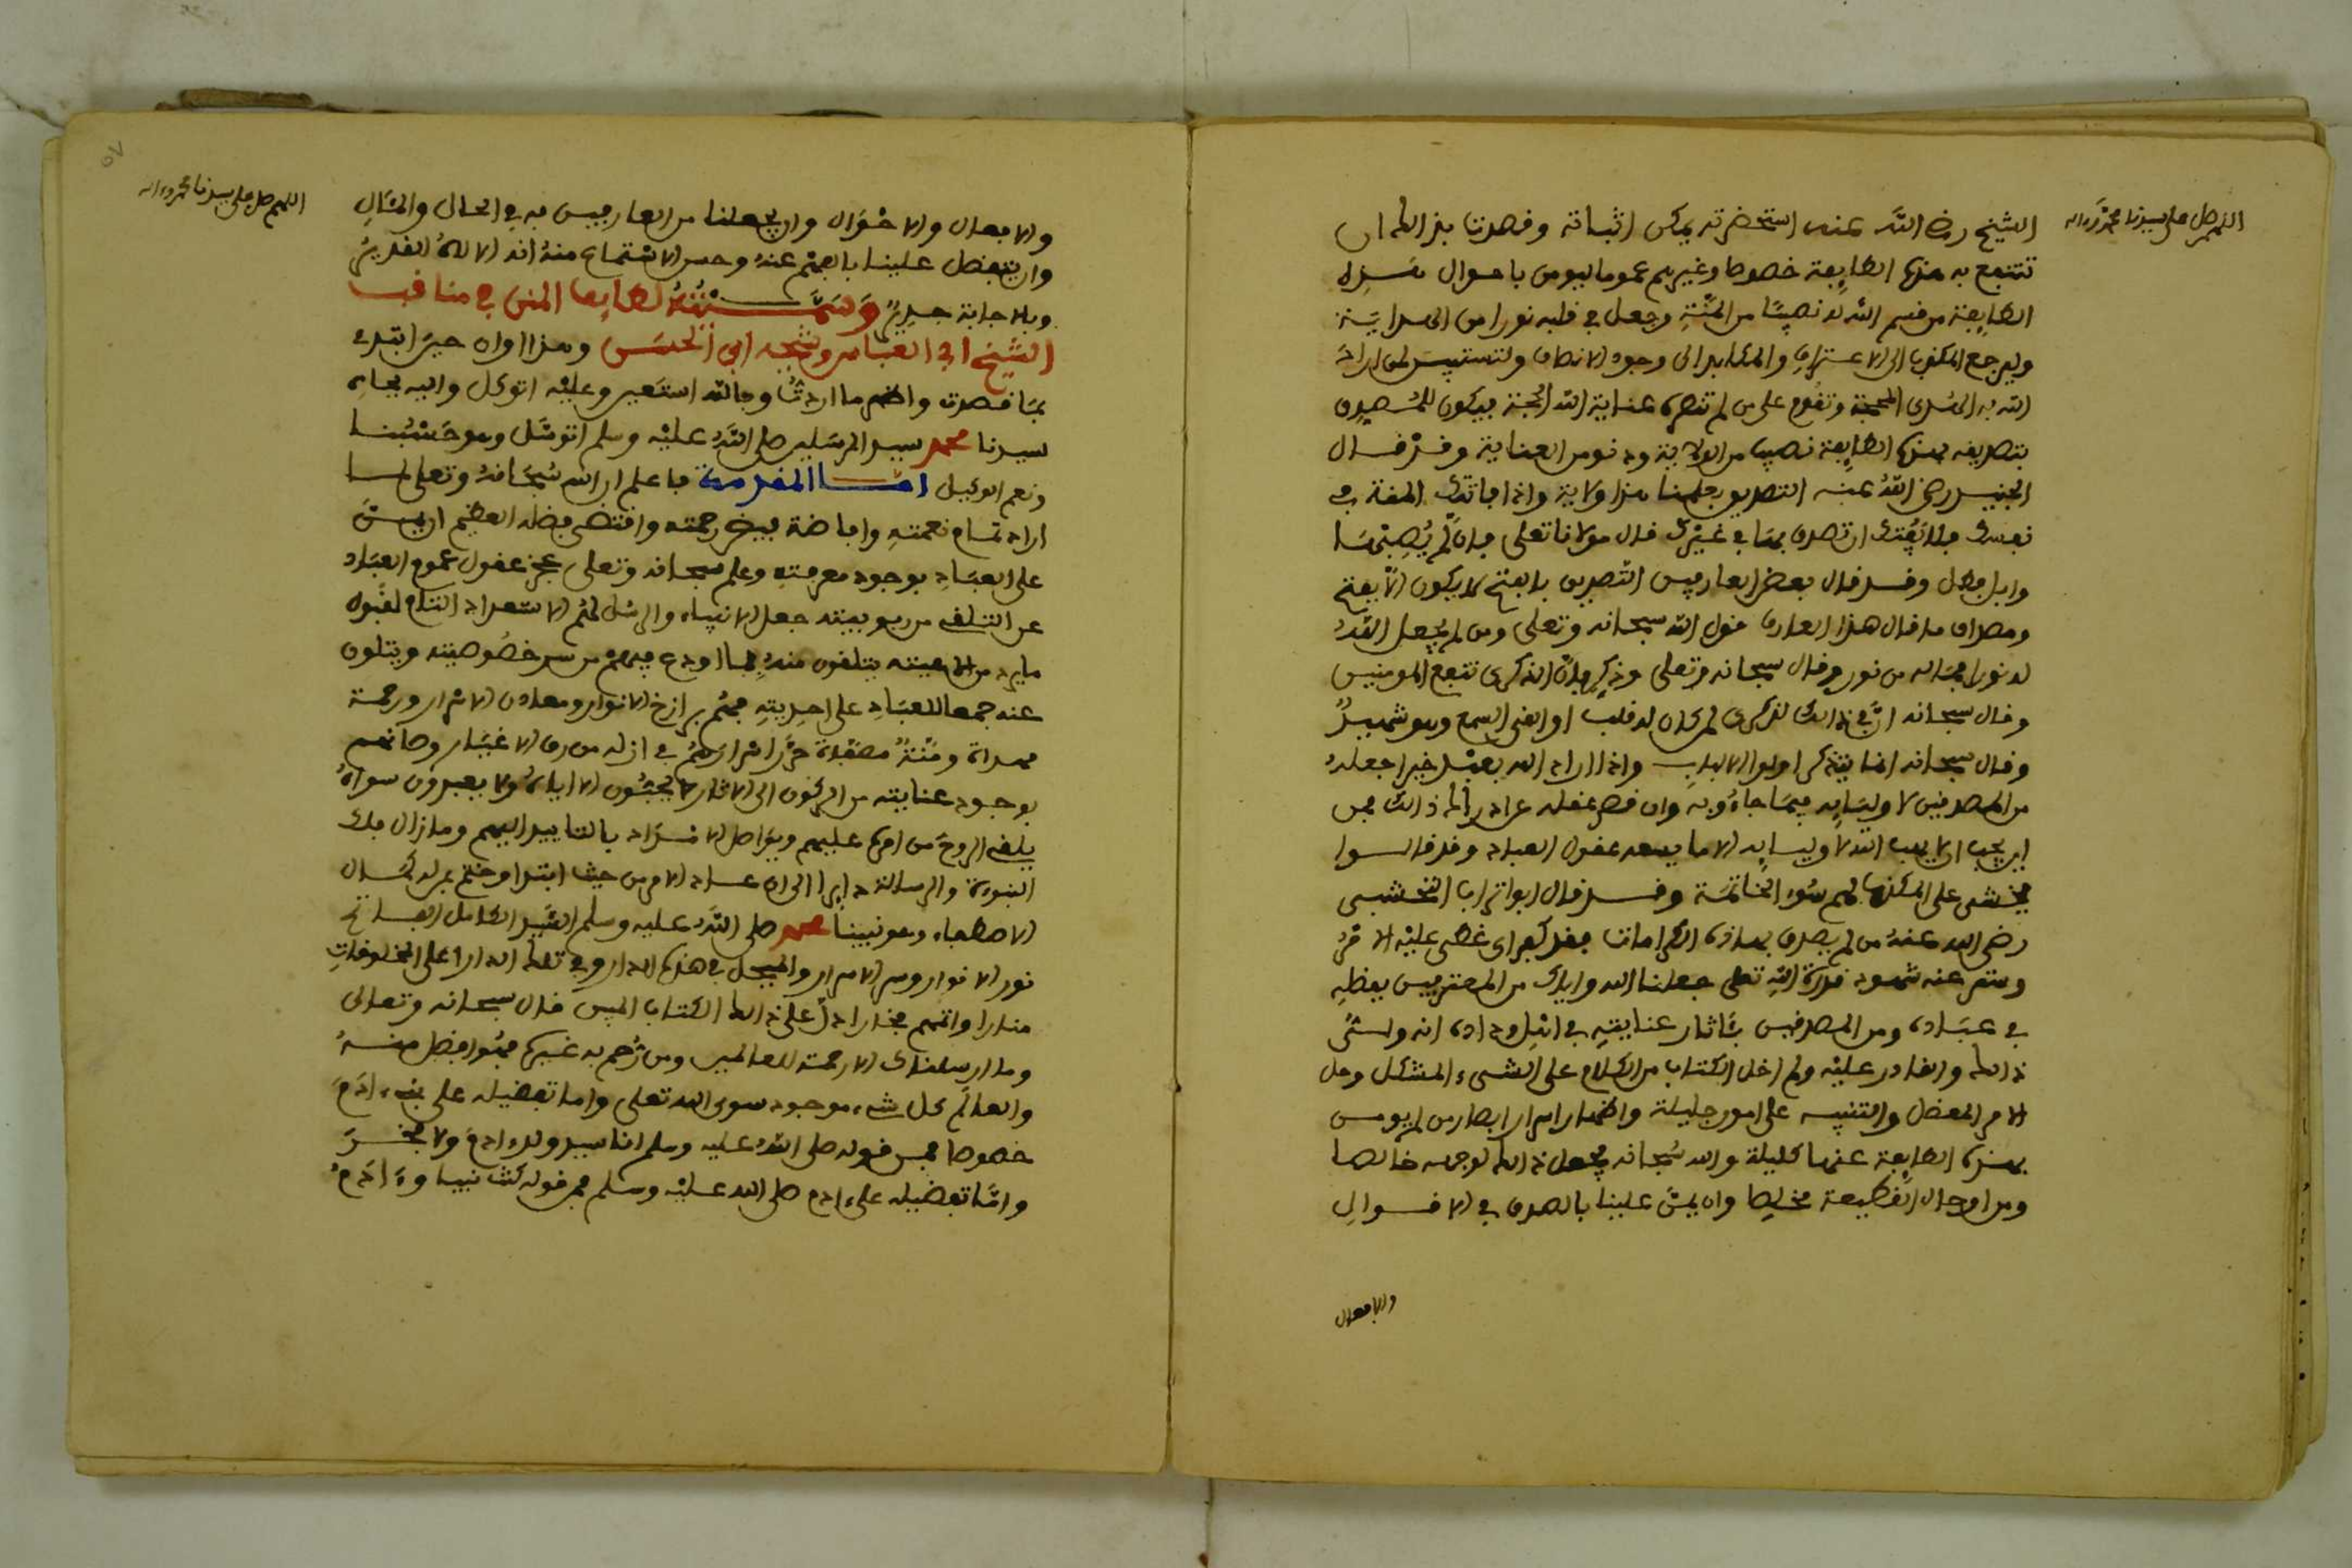 اللهم صل على سيدنا محمد وءاله
الشيخ رضي الله عنه استحضرته يمكن اثباته وقصدت بذالك ان
تنتفع به هذه الطايفة خصوصا وغيرهم عموما ليومن باحوال هذه
الطايفة من قسم الله له نصيبا من المنة وجعل في قلبه نورا من الهداية
ويرجع المكذب الى الاعتراف والمكابر الى وجود الانصاف ولتستبين لمن اراد
الله به الهدى المحجة وتقوم على من لم تنصره عناية الله الحجة فيكون للمصدق
بتصديقه بهذه الطايفة نصيب من الولاية ودنو من العناية وقد قال
الجنيد رضي الله عنه التصديق بعلمنا هذا ولاية واذا فاتتك المنة في
نفسك فلا يفتك ان تصدق بها في غيرك قال مولانا تعلى فان لم يصبها
وابل فطل وقد قال بعض العارفين التصديق بالفتح لا يكون الا بفتح
ومصداق ما قال هذا العارف قول الله سبحانه وتعلى ومن لم يجعل الله
له نورا فما له من نور وقال سبحانه وتعلى وذكر فان الذكرى تنفع المومنين
وقال سبحانه ان في ذالك لذكرى لمن كان له قلب او القى السمع وهو شهيد
وقال سبحانه انما يتذكر اولوا الالباب واذا اراد الله بعبد خيرا جعله
من المصدقين لاوليايه فيما جاءوا به وان قصر عقله عن ادراك ذالك فمن
اين يجب ان لا يهب الله لاوليايه الا ما يسعه عقول العباد وقد قالوا
يخشى على المكذب لهم سوء الخاتمة وقد قال ابو تراب النخشبي
رضي الله عنه من لم يصدق بهاذه الكرامات فقد كفر اي غطي عليه الامر
وستر عنه شهود قدرة الله تعلى جعلنا الله واياك من المعترفين بفضله
في عباده ومن المصدقين بـاثار عنايته في اهل وداده انه ولي
ذالك والقادر عليه ولم اخل الكتاب من الكلام على الشيء المشكل وحل
الامر المعضل والتنبيه على امور جليلة واظهار اسرار ابصار من لم يومن
بهذه الطايفة عنها كليلة والله سبحانه يجعل ذالك لوجهه خالصا
ومن اوحال القطيعة مخلصا وان يمن علينا بالصدق في الاقوال
والافعال
اللهم صل على سيدنا محمد وءاله
والافعال والاحوال وان يجعلنا من العارفين به في الحال والمئال
وان يتفضل علينا بالفهم عنه وحسن الاستماع منه انه الاله القدير
وبالاجابة جدير وسميته لطايف المنن في مناقب
الشيخ ابي العباس وشيخه ابي الحسن وهذا اوان حين ابتدئ
بما قصدت واظهر ما اردت وبالله استعين وعليه اتوكل واليه بجاه
سيدنا محمد سيد المرسلين صلى الله عليه وسلم اتوسل وهو حسبنا
ونعم الوكيل اما المقدمة فاعلم ان الله سبحانه وتعلى لما
اراد تمام نعمته وافاضة فيض رحمته واقتضى فضله العظيم ان يمن
على العباد بوجود معرفته وعلم سبحانه وتعلى عجز عقول عموم العباد
عن التلقي من ربوبيته جعل الانبياء والرسل لهم الاستعداد التام لقبول
ما يرد من الاهيته يتلقون منه بما اودع فيهم من سر خصوصيته ويتلون
عنه جمعا للعباد على احديته فهم برازخ الانوار ومعادن الاسرار ورحمة
مهداة ومنة مصفاة حرر اسرارهم في ازله من رق الاغيار وصانهم
بوجود عنايته من الركون الى الاثار لا يحبون الا اياه ولا يعبدون سواه
يلقي الروح من امره عليهم ويواصل الامداد بالتاييد اليهم وما زال فلك
النبوءة والرسالة دايرا الى ان عاد الامر من حيث ابتدا وختم بمن له كمال
الاصطفاء وهو نبينا محمد صلى الله عليه وسلم السيد الكامل الفاتح
نور الانوار وسر الاسرار والمبجل في هذه الدار وفي تلك الدار اعلى المخلوقات
منارا واتمهم فخارا دل على ذالك الكتاب المبين قال سبحانه وتعالى
وما ارسلناك الا رحمة للعالمين ومن رحم به غيره فهو افضل منه
والعالم كل شيء موجود سوى الله تعلى واما تفضيله على بني ءادم
خصوصا فمن قوله صلى الله عليه وسلم انا سيد ولد ءادم ولا فخر
واما تفضيله على ءادم صلى الله عليه وسلم فمن قوله كنت نبيا وءادم